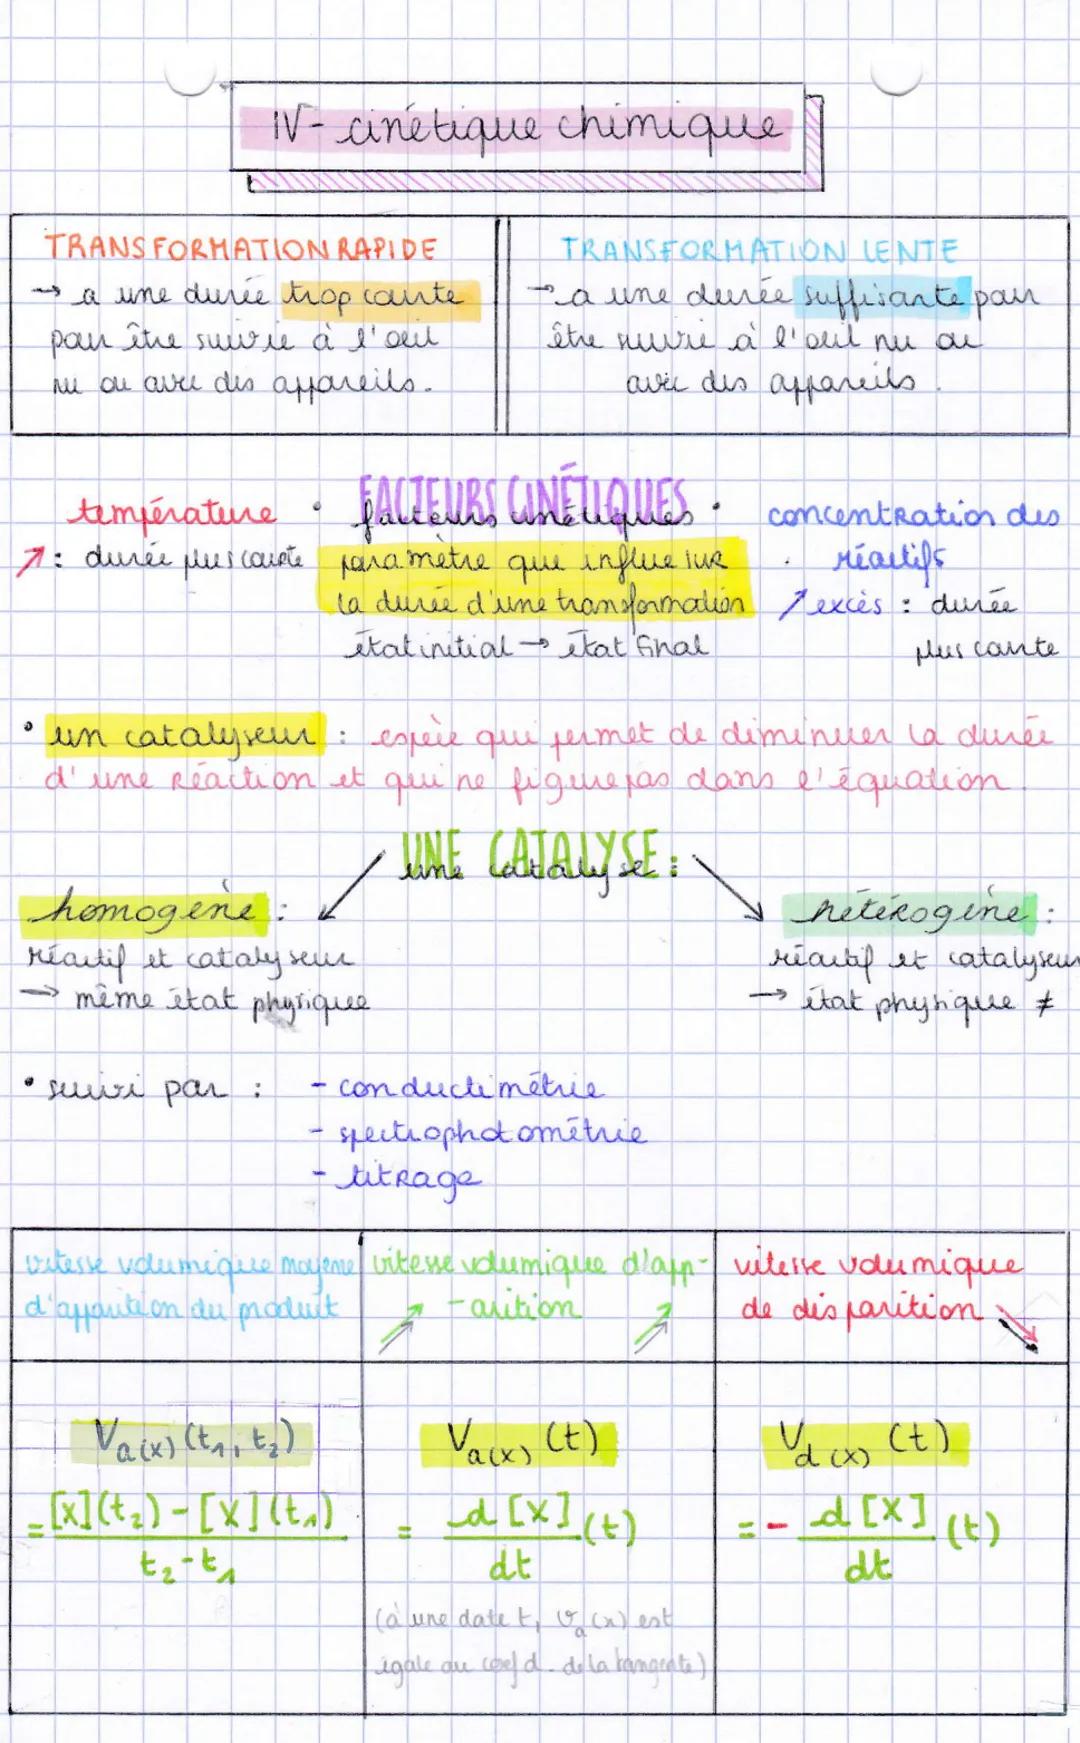 IV- cinétique chimique
TRANSFORMATION RAPIDE
→ a une durée trop courte
pour être suivie à l'oeil
nu ou avec des appareils.
TRANSFORMATION LENTE
→ a une durée suffisante pour
être suivre à l'oeil nu ou
avec des appareils.
température
↗ : durée plus courte
• FACTEURS CINÉTIQUES •
facteurs cinétiques
paramètre que influe sur
la durée d'une transformation
état initial → état final
concentration des
réactifs
↗ excès : durée
plus courte
• un catalyseur : espèce qui permet de diminuer la durée
d'une réaction et qui ne figure pas dans l'équation.
UNE CATALYSE :
une catalyse :
homogène :
réactif et catalyseur
→ même état physique
hétérogène :
réactif et catalyseur
→ état physique ≠
• suivi par : - conductimétrie
- spectrophotométrie
- titrage
vitesse volumique moyenne
d'apparition du produit
vitesse volumique d'app-
-arition
vitesse volumique
de disparition
Va(x) (t1, t2)
= [x](t2) - [x](t1)
t2 - t1
Va(x) (t)
= d[x] (t)
dt
(à une date t, va(x) est
égale au coef d. de la tangente)
Vd(x) (t)
= - d[x] (t)
dt